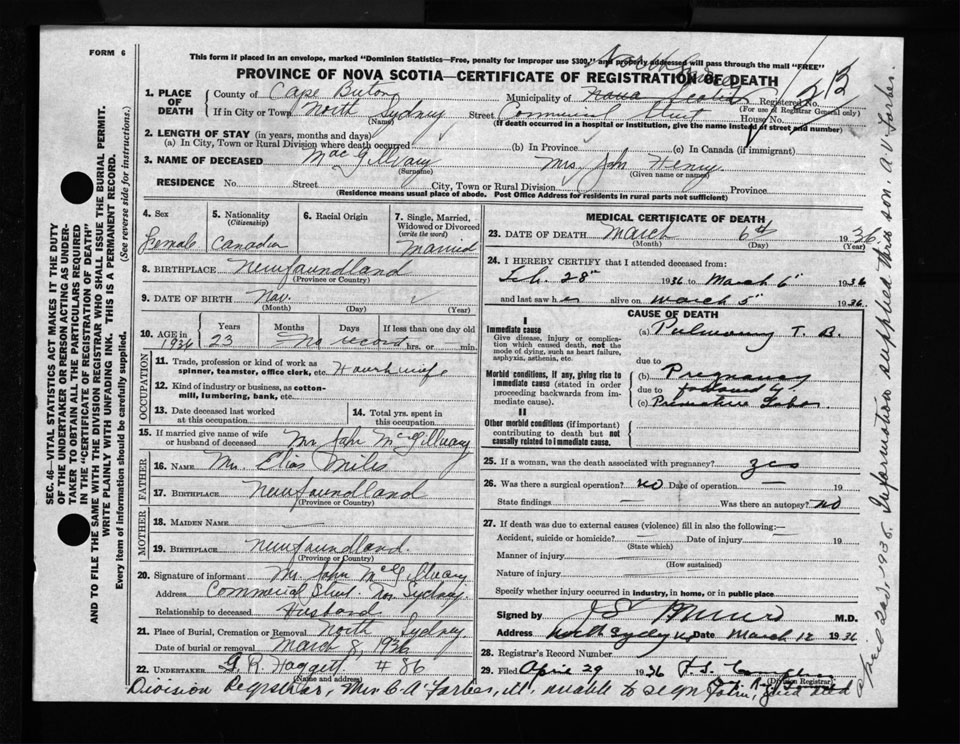 FORM 6
This form if placed in an envelope, marked "Dominion Statistics—Free, penalty for improper use $300," and properly addressed will pass through the mail "FREE"
PROVINCE OF NOVA SCOTIA—CERTIFICATE OF REGISTRATION OF DEATH
1. PLACE OF DEATH
County of Cape Breton Municipality of Nova Scotia Registered No.
(For use of Registrar General only)
If in City or Town North Sydney Street Commercial Street House No.
(Name) (If death occurred in a hospital or institution, give the name instead of street and number)
2. LENGTH OF STAY (in years, months and days)
(a) In City, Town or Rural Division where death occurred (b) In Province (c) In Canada (if immigrant)
3. NAME OF DECEASED MacGillvary Mrs John Henry
(Surname) (Given name or names)
RESIDENCE No. Street City, Town or Rural Division Province
(Residence means usual place of abode. Post Office Address for residents in rural parts not sufficient)
4. Sex Female
5. Nationality (Citizenship) Canadian
6. Racial Origin
7. Single, Married, Widowed or Divorced (write the word) Married
8. BIRTHPLACE Newfoundland
(Province or Country)
9. DATE OF BIRTH Nov.
(Month) (Day) (Year)
10. AGE in 1936 Years 23 Months Days No record If less than one day old hrs. or min.
OCCUPATION
11. Trade, profession or kind of work as spinner, teamster, office clerk, etc. Housewife
12. Kind of industry or business, as cotton-mill, lumbering, bank, etc.
13. Date deceased last worked at this occupation
14. Total yrs. spent in this occupation
15. If married give name of wife or husband of deceased Mr John McGillvary
FATHER
16. NAME Mr. Elias Miles
17. BIRTHPLACE Newfoundland
(Province or Country)
MOTHER
18. MAIDEN NAME —
19. BIRTHPLACE Newfoundland.
(Province or Country)
20. Signature of informant Mr. John McGillvary
Address Commercial Street. Nor. Sydney.
Relationship to deceased Husband
21. Place of Burial, Cremation or Removal North Sydney.
Date of burial or removal March 8, 1936
22. UNDERTAKER G. R. Haggett # 86
(Name and address)
MEDICAL CERTIFICATE OF DEATH
23. DATE OF DEATH March 6th 1936.
(Month) (Day) (Year)
24. I HEREBY CERTIFY that I attended deceased from:
Feb. 28" 1936 to March 6" 1936
and last saw her alive on March 5" 1936.
CAUSE OF DEATH
I
Immediate cause
Give disease, injury or complication which caused death, not the mode of dying, such as heart failure, asphyxia, asthenia, etc.
(a) Pulmonary T. B.
due to
Morbid conditions, if any, giving rise to immediate cause (stated in order proceeding backwards from immediate cause).
(b) Pregnancy
due to followed by
(c) Premature Labor
II
Other morbid conditions (if important) contributing to death but not causally related to immediate cause.
25. If a woman, was the death associated with pregnancy? yes
26. Was there a surgical operation? No Date of operation — 19
State findings — Was there an autopsy? No
27. If death was due to external causes (violence) fill in also the following:—
Accident, suicide or homicide? Date of injury 19
(State which)
Manner of injury
(How sustained)
Nature of injury
Specify whether injury occurred in industry, in home, or in public place
Signed by M.D.
Address North Sydney Date March 12 1936
28. Registrar's Record Number
29. Filed April 29 1936
(Division Registrar)
Division Registrar, Mrs C. A. Forbes, ill, unable to sign
SEC. 46—VITAL STATISTICS ACT MAKES IT THE DUTY OF THE UNDERTAKER OR PERSON ACTING AS UNDERTAKER TO OBTAIN ALL THE PARTICULARS REQUIRED IN THE "CERTIFICATE OF REGISTRATION OF DEATH" AND TO FILE THE SAME WITH THE DIVISION REGISTRAR WHO SHALL ISSUE THE BURIAL PERMIT.
WRITE PLAINLY WITH UNFADING INK. THIS IS A PERMANENT RECORD.
Every item of information should be carefully supplied. (See reverse side for instructions.)
April 22nd. 1936. Information supplied thro son. A. V. Forbes.